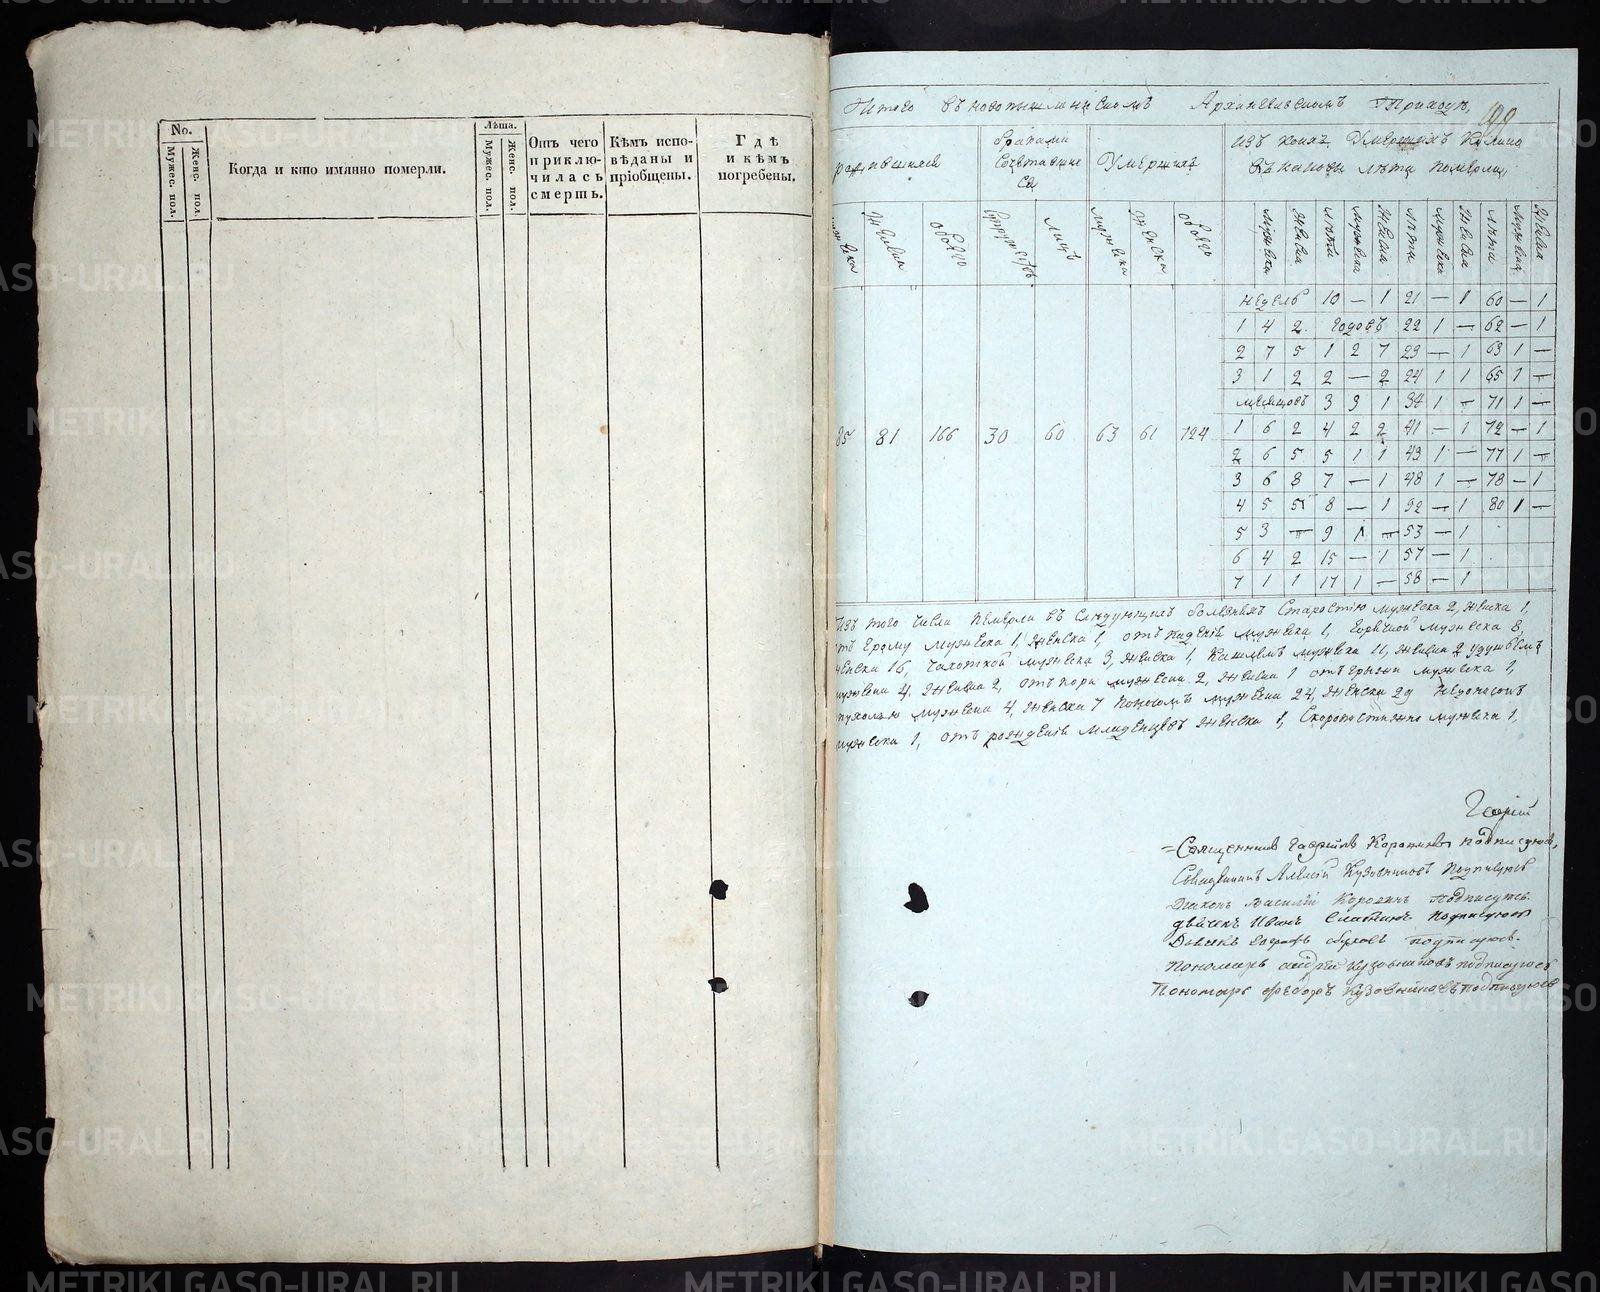 No.
Мужес. пол.
Женс. пол.
Когда и кто имянно померли.
Лѣта.
Мужес. пол.
Женс. пол.
Отъ чего
приклю-
чилась
смерть.
Кѣмъ испо-
вѣданы и
пріобщены.
Гдѣ
и кѣмъ
погребены.
Итого въ Архангельскомъ Приходѣ
199
браками
Сочетавшие
ся
Умершихъ
Изъ коихъ Умершихъ Колико
Въ каковы лѣта померли,
Женска
обоего
Супружествъ
лицъ
мужеска
Женска
обоего
Мужеска
Женска
лѣта
мужеска
Женска
лѣта
мужеска
Женска
лѣта
мужеска
Женска
недель 10 — 1 21 — 1 60 — 1
1 4 2 Годовъ 22 1 — 62 — 1
2 7 5 1 2 7 23 — 1 63 1 —
3 1 2 2 — 2 24 1 1 65 1 —
месяцовъ 3 3 1 34 1 — 71 1 —
85 81 166 30 60 63 61 124
1 6 2 4 2 2 41 — 1 72 — 1
2 6 5 5 1 1 43 1 — 77 1 —
3 6 8 7 — 1 48 1 — 78 — 1
4 5 5 8 — 1 52 — 1 80 1 —
5 3 — 9 1 — 53 — 1
6 4 2 15 — 1 57 — 1
7 1 1 17 1 — 58 — 1
Изъ того числа Померли въ Следующихъ болезняхъ Старостію мужеска 2, женска 1,
мужеска 1, Женска 1, отъ мужеска 1, Горячкой мужеска 8,
женска 16, Чахоткой мужеска 3, женска 1, Кашлемъ мужеска 11, женска 2 удушьемъ
мужеска 4, Женска 2, отъ кори мужеска 2, женска 1 отъ грыжи мужеска 1,
мужеска 4, женска 7 Поносомъ мужеска 24, женска 29
мужеска 1, отъ рожденія Младенцевъ женска 1, Скоропостижно мужеска 1,
Священникъ Гавріилъ подписуюсь,
Священникъ Алексій Кузовниковъ Подписуюсь
Діаконъ Василій подписуюсь
Дьячекъ Иванъ Подписуюсь
подписуюсь.
Пономарь Андрей Кузовниковъ подписуюсь
Пономарь Ѳеодоръ Кузовниковъ подписуюсь
METRIKI.GASO-URAL.RU